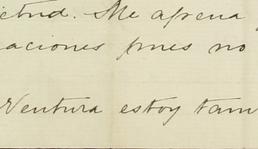 ictud. Me apena
aciones pues no
Ventura estoy tam